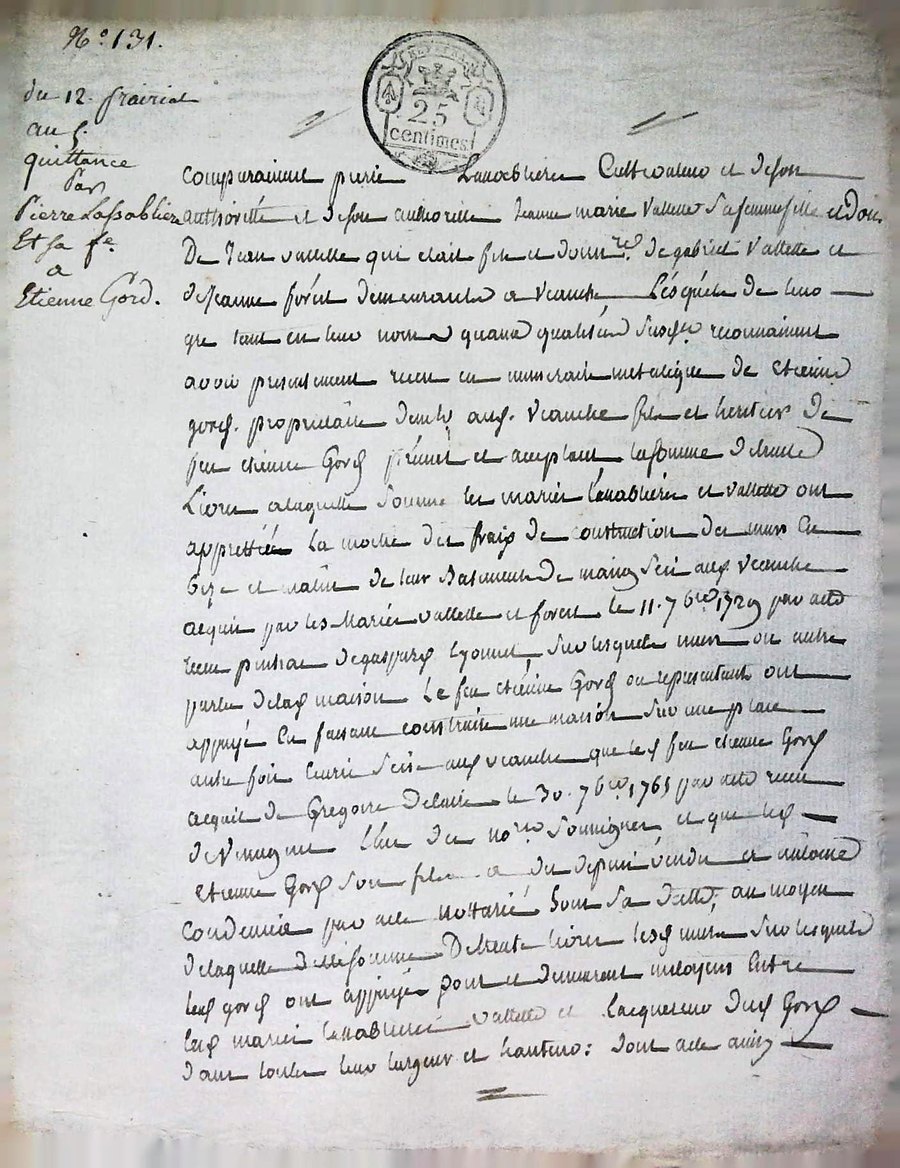 N.° 131.
du 12. prairial
an 5.
quittance
Par
Pierre Lassablière
Et sa f.e
a
Etienne Gord.
RÉP. FRA.
25
centimes
comparaissent pierre Lassabliere Cultivateur et de son
authorité et de son authorité Jeanne marie Vallette sa femme fille et
De Jean vallette qui etait fils et de gabriel Vallette et
de Jeanne forest demeurants a veauche Lesquels de leur
gré tant en leur nom quand qualités susd. reconnaissent
avoir presentement recu en numeraire metalique de etienne
gord. propriétaire aud. veauche fils et heritier de
feu etienne Gord présent et acceptant la somme de trente
Livres a laquelle somme les mariés Lassabliere et vallette ont
apprettiée La moitié des frais de construction des murs En
bize et matin de leur Batiment de maison scis aud veauche
acquis par les Mariés vallette et forest le 11. 7bre 1729 par acte
recu de gaspard Lyonnet, sur lesquels murs ou autre
partie de lad maison Le feu etienne Gord ou representants ont
appuyé En faisant construire une maison sur une place
autre fois Ecurie scise aud veauche que led feu etienne Gord
acquit de Gregoire le 30. 7bre 1765 par acte recu
de L'un des no.res soussignes, et que led
Etienne Gord son fils a du depuis vendu et
par acte Nottarié sous sa datte; au moyen
de laquelle dite somme De trente Livres lesd murs sur lesquels
lesd gord ont appuyé sont et demeurent mitoyens Entre
lesd mariés lassabliere vallette et L'acquereur dud Gord
dans toute leur largeur et hauteur: dont acte ainsy